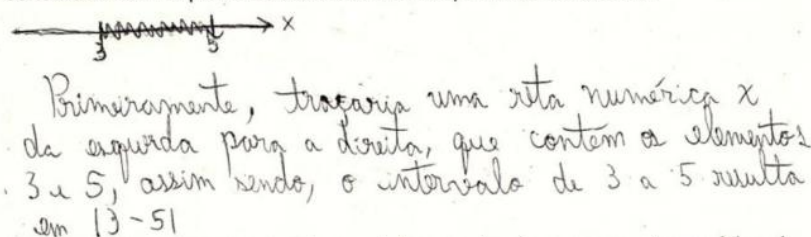 x
3 5
Primeiramente, traçaria uma reta numérica x
da esquerda para a direita, que contem os elementos
3 e 5, assim sendo, o intervalo de 3 a 5 resulta
em |3-5|